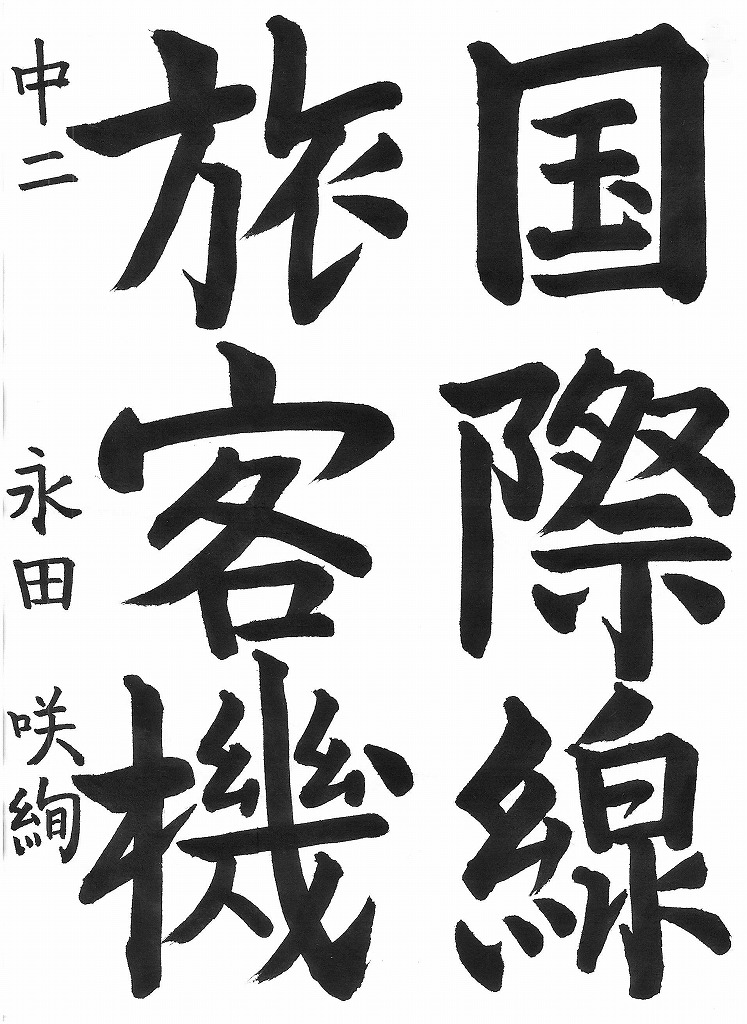 国際線
旅客機
中二 永田 咲絢